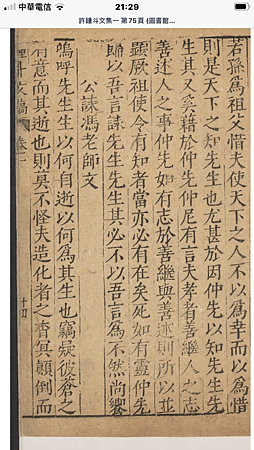 中華電信 21:29
許鍾斗文集一 第75頁 (圖書館...
若孫爲祖父惜夫使天下之人不以爲幸而以爲惜
則是天下之知先生也尤甚於因仲先以知先生先
生其又奚藉於仲先仲尼有言夫孝者善繼人之志
善述人之事仲先如有志於善繼與善述則所以並
顯厥祖使今有知者當亦必有在矣死如有靈仲先
歸以吾言詠先生先生其必不以吾言爲不然尚饗
公誄馮老師文
嗚呼先生生以何自逝以何爲其生也竊疑彼蒼之
有意而其逝也則莫不怪夫造化者之杳冥顛倒而
十四